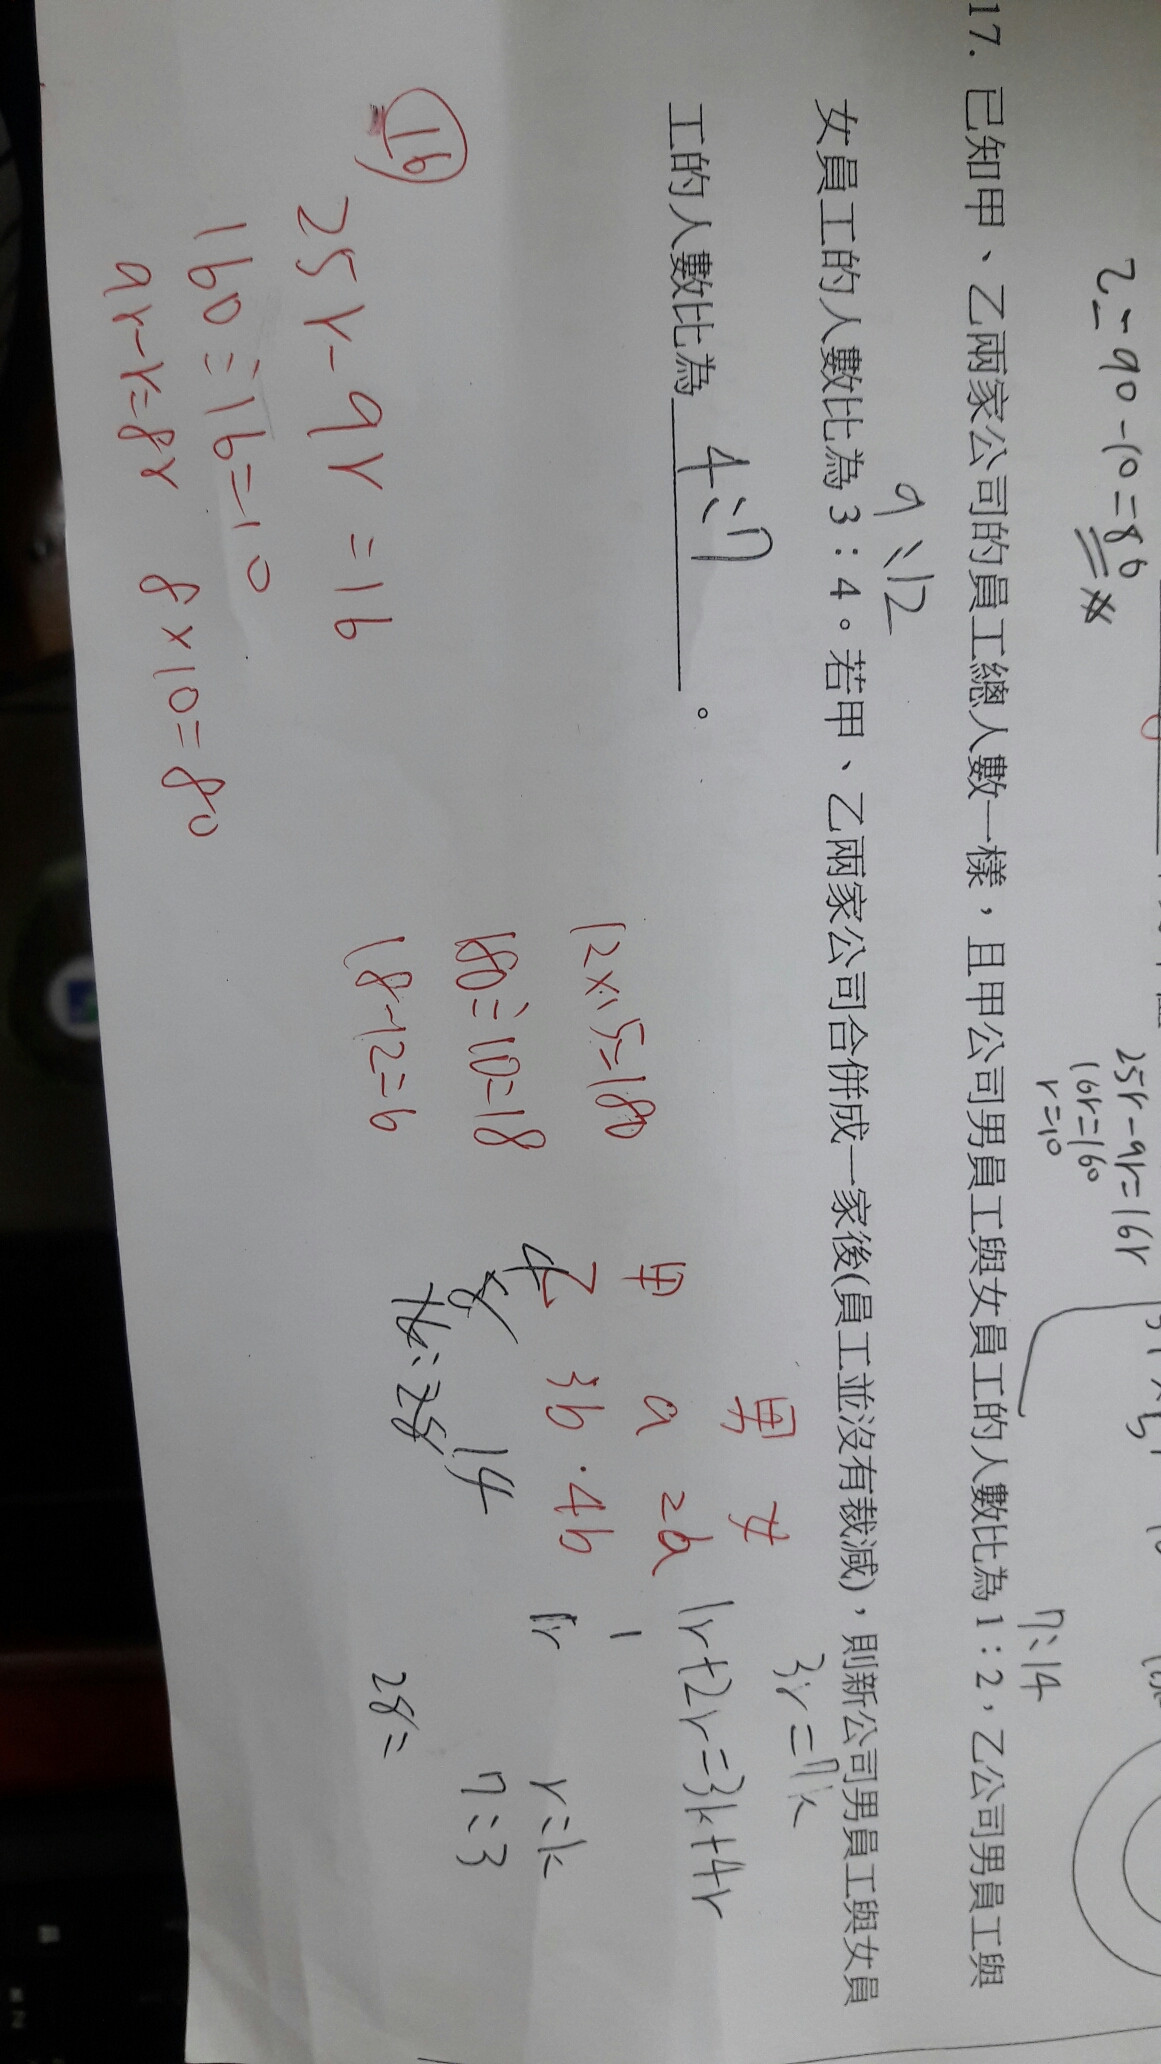 2-90-10=80
25r-9r=16r
16r=160
r=10
7:14
17. 已知甲、乙兩家公司的員工總人數一樣，且甲公司男員工與女員工的人數比為 1：2，乙公司男員工與
9:12
女員工的人數比為 3：4。若甲、乙兩家公司合併成一家後(員工並沒有裁減)，則新公司男員工與女員
工的人數比為 4:7 。
3r=7k
1r+2r=3k+4r
男 女
甲 a 2a
乙 3b . 4b
1
1r
r=k
7:3
12×15=180
180÷10=18
18-12=6
4
8 14
16:28
28=
16
25r-9r=16
160÷16=10
9r-r=8r 8×10=80